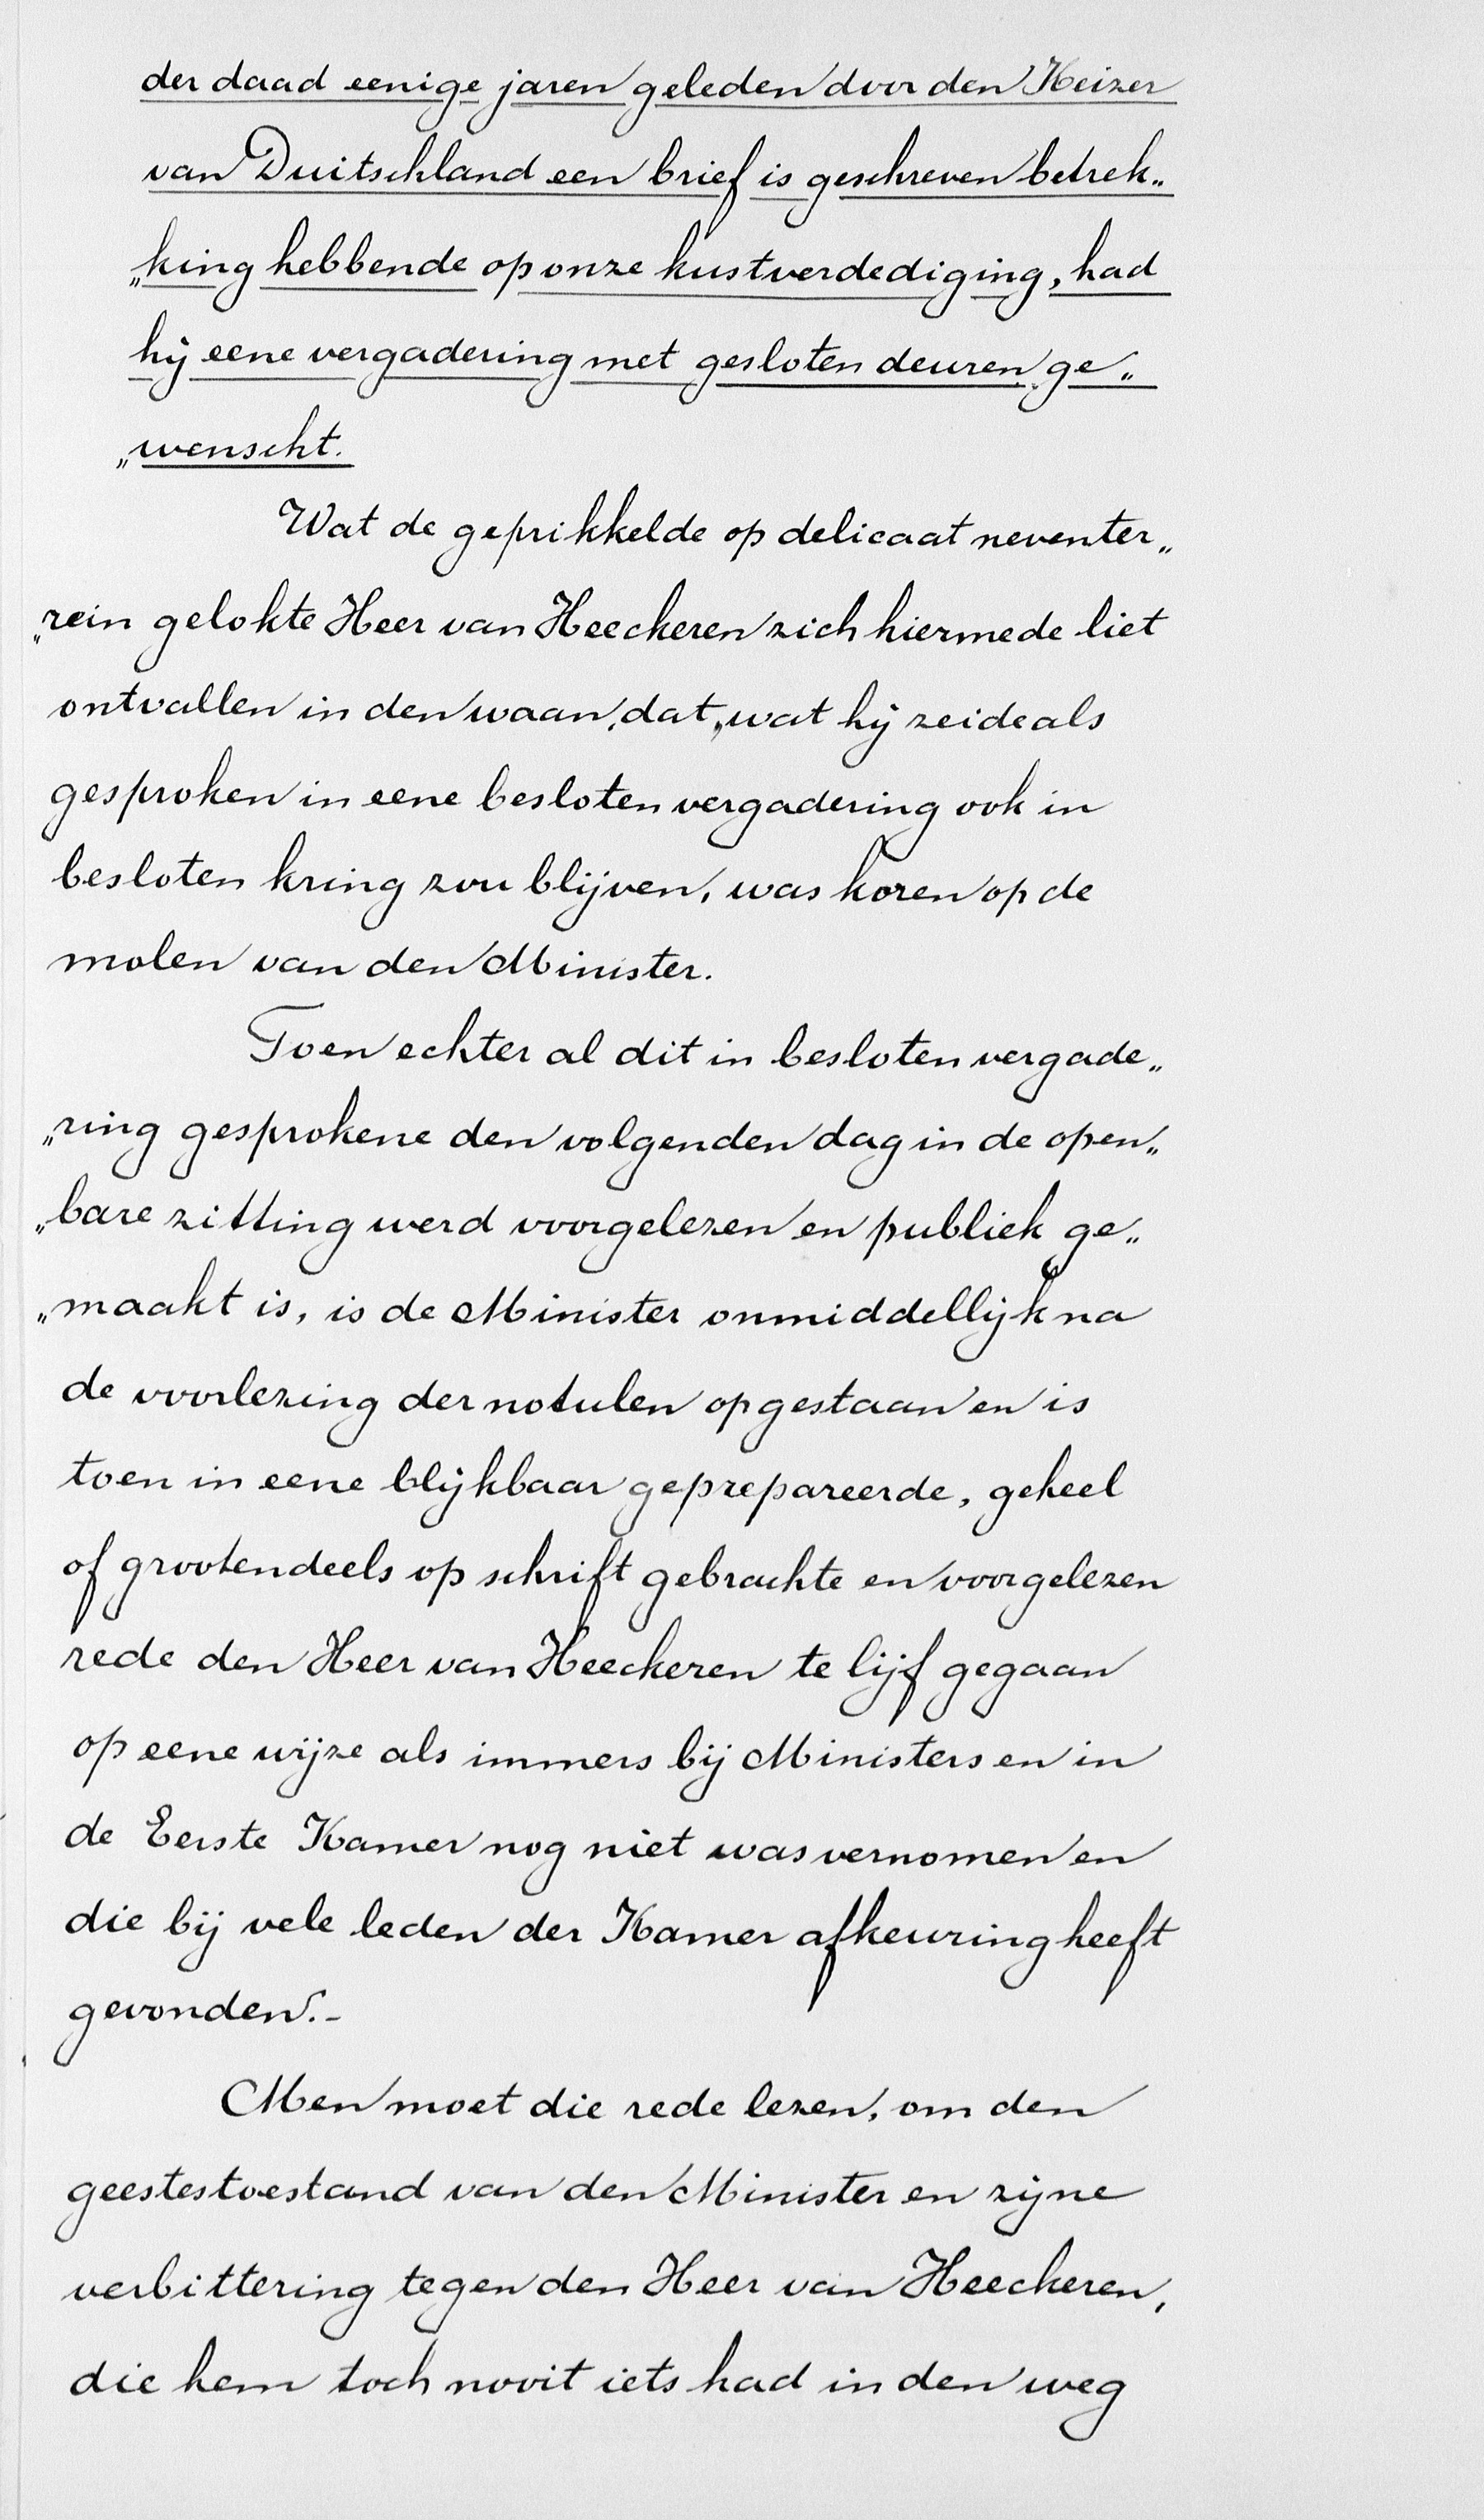 der daad eenige jaren geleden door den Keizer
van Duitschland een brief is geschreven betrek„
„king hebbende op onze kustverdediging, had
hij eene vergadering met gesloten deuren ge„
„wenscht.
Wat de geprikkelde op delicaat neventer„
„rein gelokte Heer van Heeckeren zich hiermede liet
ontvallen in den waan, dat, wat hij zeide als
gesproken in eene besloten vergadering ook in
besloten kring zou blijven, was koren op de
molen van den Minister.
Toen echter al dit in besloten vergade„
„ring gesprokene den volgenden dag in de open„
„bare zitting werd voorgelezen en publiek ge„
„maakt is, is de Minister onmiddellijk na
de voorlezing der notulen opgestaan en is
toen in eene blijkbaar geprepareerde, geheel
of grootendeels op schrift gebrachte en voorgelezen
rede den Heer van Heeckeren te lijf gegaan
op eene wijze als immers bij Ministers en in
de Eerste Kamer nog niet was vernomen en
die bij vele leden der Kamer afkeuring heeft
gevonden.-
Men moet die rede lezen, om den
geestestoestand van den Minister en zijne
verbittering tegen den Heer van Heeckeren,
die hem toch nooit iets had in den weg